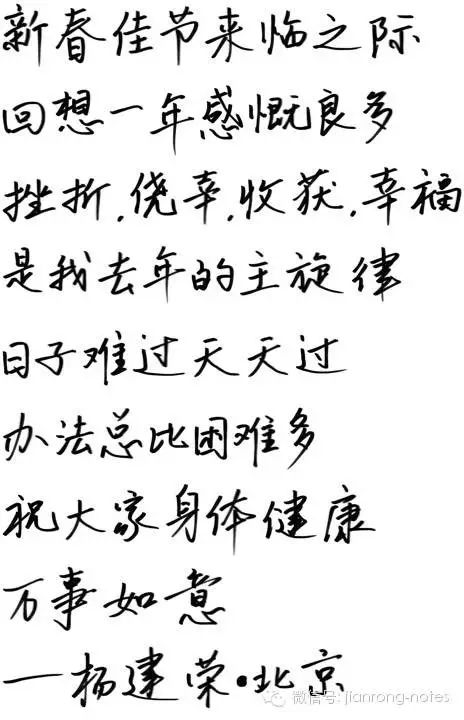 新春佳节来临之际
回想一年感慨良多
挫折,侥幸,收获,幸福
是我去年的主旋律
日子难过天天过
办法总比困难多
祝大家身体健康
万事如意
一杨建荣·北京
微信号: jianrong-notes